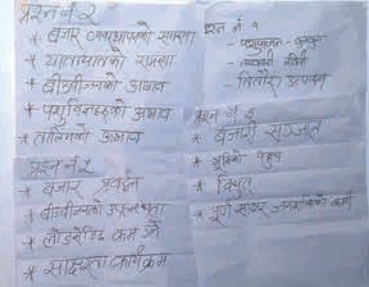 प्रश्न नं २
* बजार व्यवस्थापनको समस्या
* यातायातको समस्या
* बीउबीजनको अभाव
* पशुविज्ञहरुको अभाव
* तालिमको अभाव
प्रश्न नं ४
* बजार प्रवर्द्धन
* बीउबीजनको उपलब्धता
* लोडसेडिङ कम गर्ने
* साक्षरता कार्यक्रम
प्रश्न नं १
- पशुपालन - कुखुरा
- तरकारी खेती
- उत्पादन
प्रश्न नं ३
* बजारी सञ्जाल
* भूमिको
* विधुत
* पूर्ण साक्षर कमी